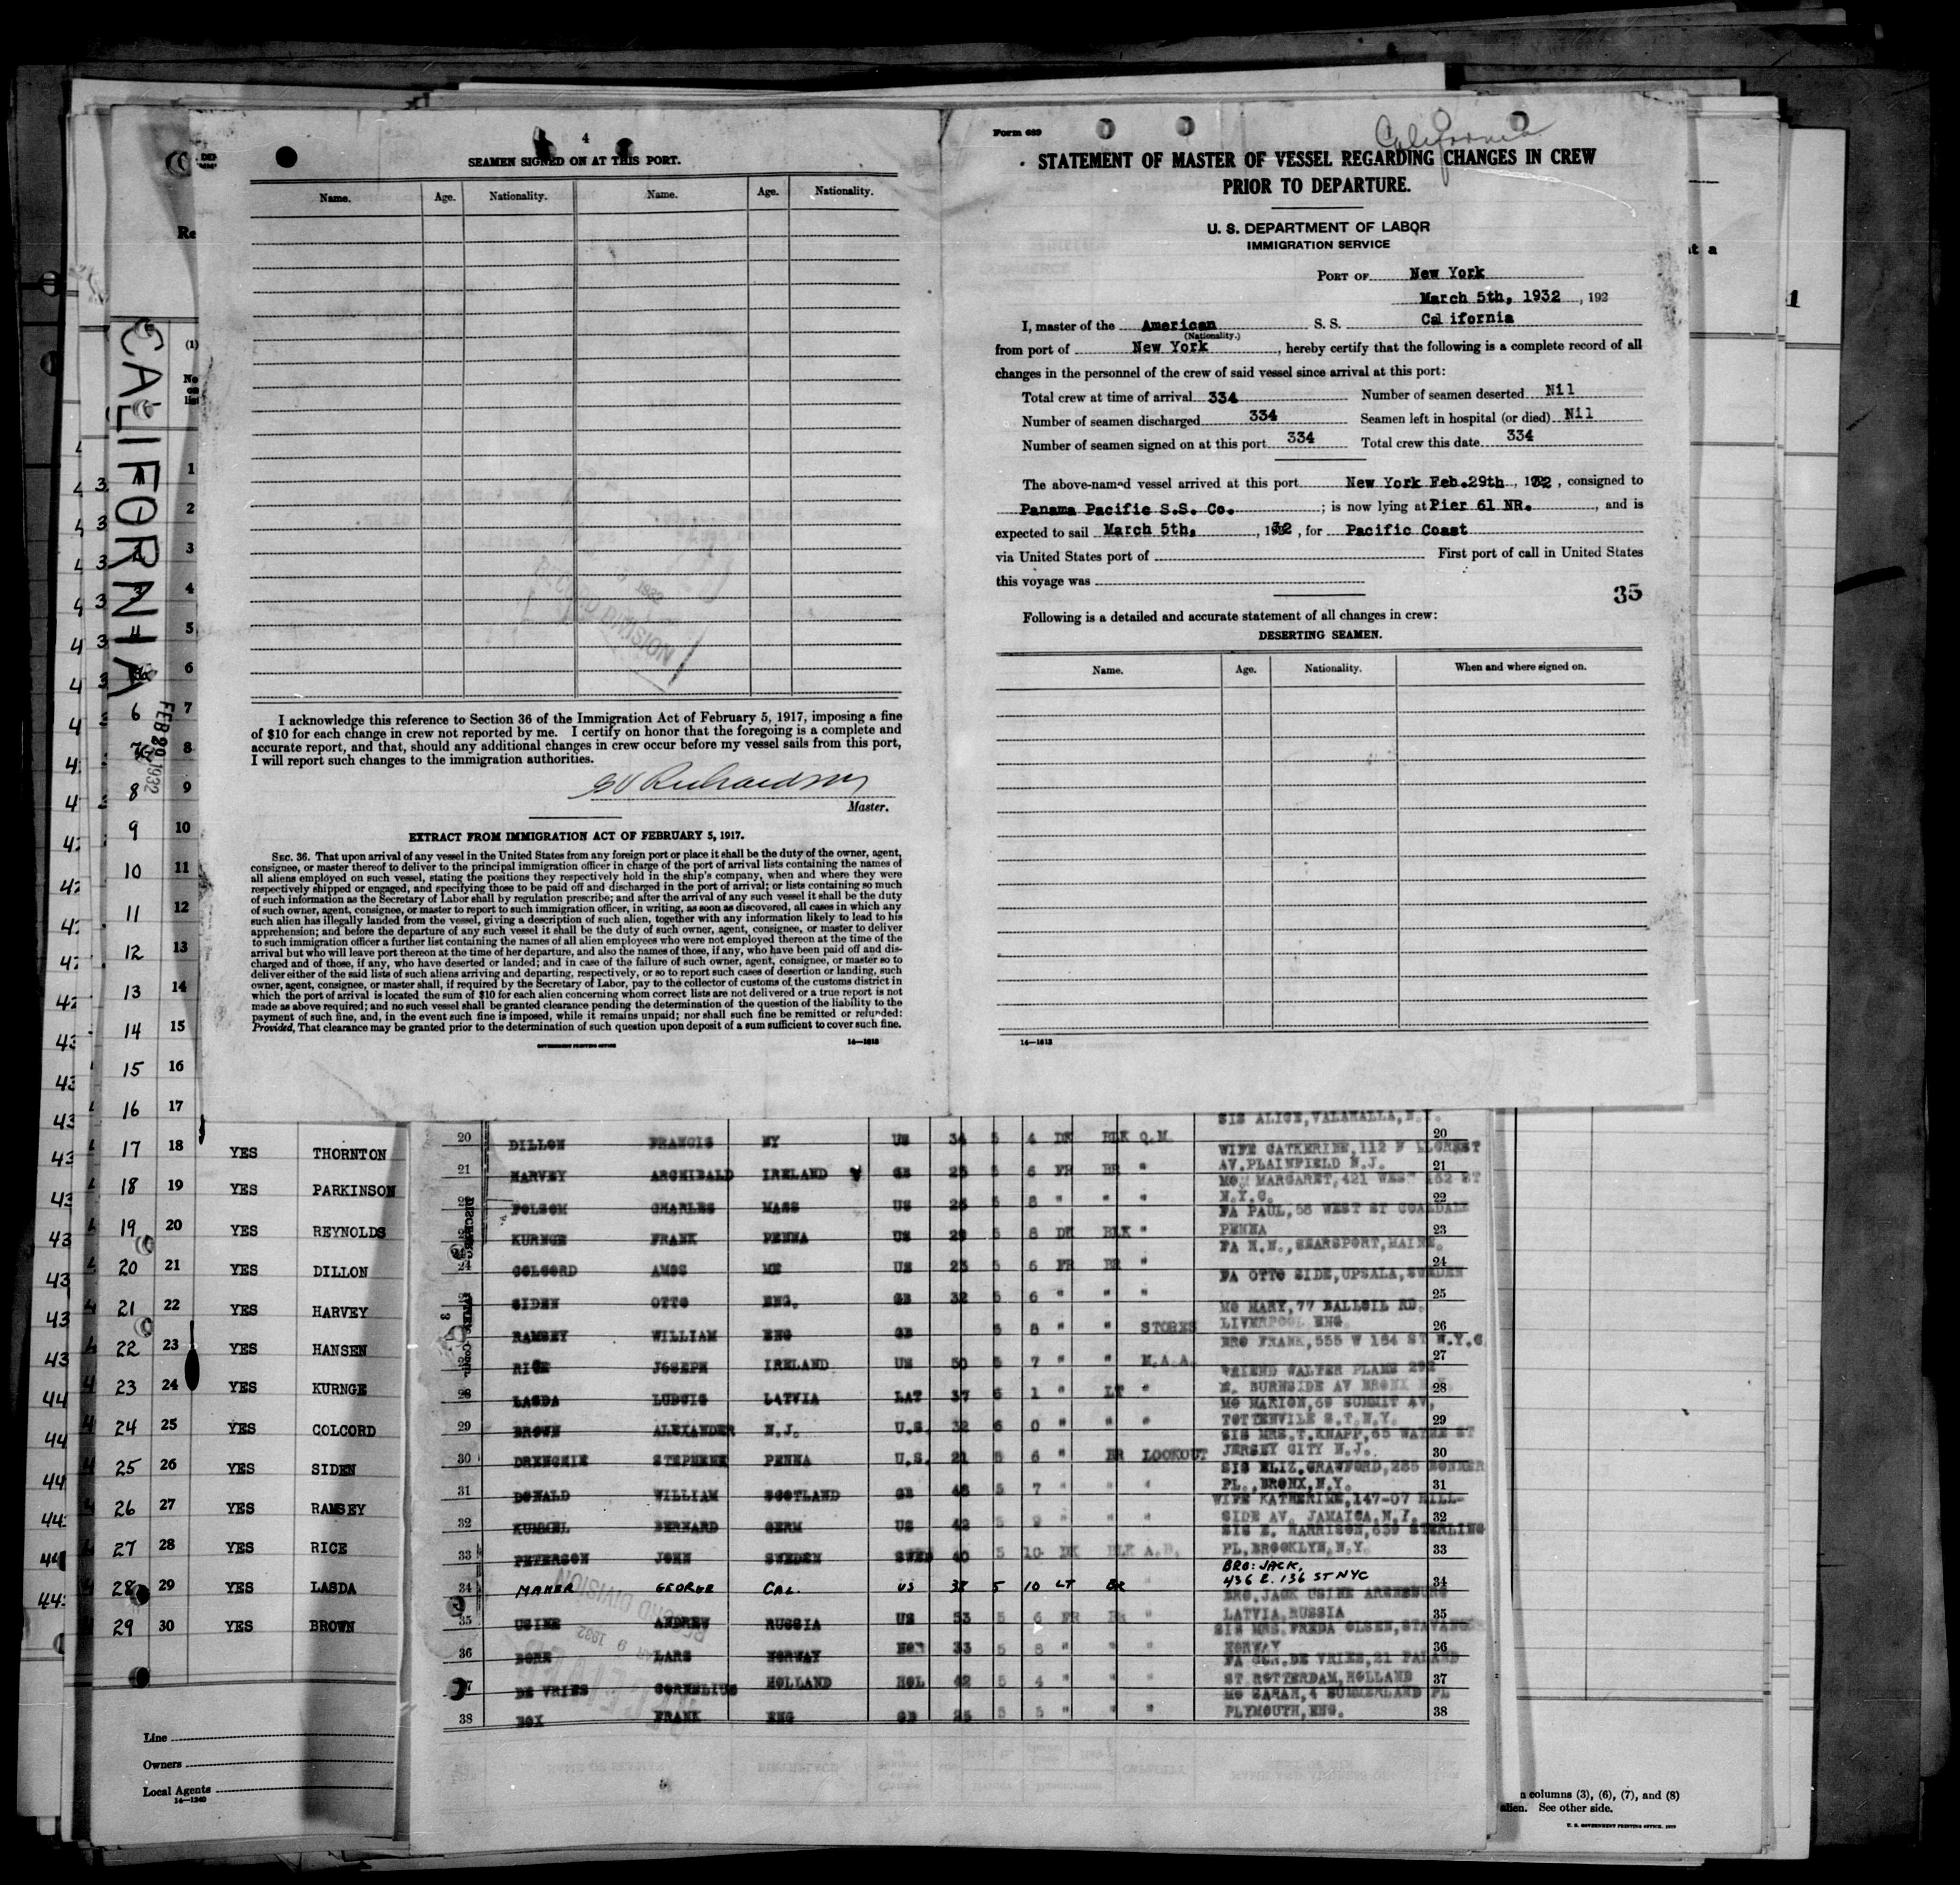 4
SEAMEN SIGNED ON AT THIS PORT.
Name. Age. Nationality. Name. Age. Nationality.
I acknowledge this reference to Section 36 of the Immigration Act of February 5, 1917, imposing a fine
of $10 for each change in crew not reported by me. I certify on honor that the foregoing is a complete and
accurate report, and that, should any additional changes in crew occur before my vessel sails from this port,
I will report such changes to the immigration authorities.
Richardson
Master.
EXTRACT FROM IMMIGRATION ACT OF FEBRUARY 5, 1917.
SEC. 36. That upon arrival of any vessel in the United States from any foreign port or place it shall be the duty of the owner, agent,
consignee, or master thereof to deliver to the principal immigration officer in charge of the port of arrival lists containing the names of
all aliens employed on such vessel, stating the positions they respectively hold in the ship's company, when and where they were
respectively shipped or engaged, and specifying those to be paid off and discharged in the port of arrival; or lists containing so much
of such information as the Secretary of Labor shall by regulation prescribe; and after the arrival of any such vessel it shall be the duty
of such owner, agent, consignee, or master to report to such immigration officer, in writing, as soon as discovered, all cases in which any
such alien has illegally landed from the vessel, giving a description of such alien, together with any information likely to lead to his
apprehension; and before the departure of any such vessel it shall be the duty of such owner, agent, consignee, or master to deliver
to such immigration officer a further list containing the names of all alien employees who were not employed thereon at the time of the
arrival but who will leave port thereon at the time of her departure, and also the names of those, if any, who have been paid off and dis-
charged and of those, if any, who have deserted or landed; and in case of the failure of such owner, agent, consignee, or master so to
deliver either of the said lists of such aliens arriving and departing, respectively, or so to report such cases of desertion or landing, such
owner, agent, consignee, or master shall, if required by the Secretary of Labor, pay to the collector of customs of the customs district in
which the port of arrival is located the sum of $10 for each alien concerning whom correct lists are not delivered or a true report is not
made as above required; and no such vessel shall be granted clearance pending the determination of the question of the liability to the
payment of such fine, and, in the event such fine is imposed, while it remains unpaid; nor shall such fine be remitted or refunded:
Provided, That clearance may be granted prior to the determination of such question upon deposit of a sum sufficient to cover such fine.
GOVERNMENT PRINTING OFFICE
Form 689
California
STATEMENT OF MASTER OF VESSEL REGARDING CHANGES IN CREW
PRIOR TO DEPARTURE.
U. S. DEPARTMENT OF LABOR
IMMIGRATION SERVICE
PORT OF New York
March 5th, 1932, 192
I, master of the American S. S. California
(Nationality.)
from port of New York, hereby certify that the following is a complete record of all
changes in the personnel of the crew of said vessel since arrival at this port:
Total crew at time of arrival 334 Number of seamen deserted Nil
Number of seamen discharged 334 Seamen left in hospital (or died) Nil
Number of seamen signed on at this port 334 Total crew this date 334
The above-named vessel arrived at this port New York Feb.29th, 1932, consigned to
Panama Pacific S.S. Co.; is now lying at Pier 61 NR., and is
expected to sail March 5th, 1932, for Pacific Coast
via United States port of First port of call in United States
this voyage was
35
Following is a detailed and accurate statement of all changes in crew:
DESERTING SEAMEN.
Name. Age. Nationality. When and where signed on.
CALIFORNIA
17 18 YES THORNTON
18 19 YES PARKINSON
19 20 YES REYNOLDS
20 21 YES DILLON
21 22 YES HARVEY
22 23 YES HANSEN
23 24 YES KURNGE
24 25 YES COLCORD
25 26 YES SIDEN
26 27 YES RAMSEY
27 28 YES RICE
28 29 YES LASDA
29 30 YES BROWN
Line
Owners
Local Agents
14—1240
SIS ALICE, VALAHALLA, N.Y.
20 DILLON FRANCIS NY US 34 5 4 DK BLK Q.M. 20
WIFE CATHERINE, 112
21 HARVEY ARCHIBALD IRELAND GB 25 5 6 FR BR " AV. PLAINFIELD N.J. 21
MARGARET, 421 WEST 162 ST
22 FOLSOM CHARLES MASS US 26 5 8 " " " N.Y.C. 22
FA PAUL, 58 WEST ST COALDALE
KURNGE FRANK PENNA US 29 5 8 DK BLK " PENNA 23
FA N.N., SEARSPORT, MAINE.
24 COLCORD AMOS ME US 23 5 6 FR BR " 24
FA OTTO SIDE, UPSALA, SWEDEN
SIDEN OTTO ENG. GB 32 5 6 " " " 25
MO MARY, 77 BALLGIL RD.
RAMSEY WILLIAM ENG GB 5 8 " " STORES LIVERPOOL ENG. 26
BRO FRANK, 555 W 184 ST N.Y.C
RICE JOSEPH IRELAND US 50 5 7 " " M.A.A. 27
FRIEND WALTER PLAMS
28 LASDA LUDWIG LATVIA LAT 37 6 1 " LT " E. BURNSIDE AV BRONX 28
MO MARION, 69 SUMMIT AV,
29 BROWN ALEXANDER N.J. U.S. 32 6 0 " " " TOTTENVILE S.T.N.Y. 29
SIS MRS. T. KNAPP, 65 WAYNE ST
30 DRENCHIE STEPHENE PENNA U.S. 21 5 6 " BR LOOKOUT JERSEY CITY N.J. 30
SIS ELIZ. CRAWFORD, 285 BONNER
31 DONALD WILLIAM SCOTLAND GB 48 5 7 " " " PL., BRONX, N.Y. 31
WIFE KATHERINE, 147-07 HILL-
32 KUMMEL BERNARD GERM US 42 5 " " " SIDE AV. JAMAICA, N.Y. 32
SIS E. HARRISON, 639 STERLING
33 PETERSON JOHN SWEDEN SWED 40 5 10 DK BLK A.B. PL, BROOKLYN, N.Y. 33
BRO: JACK,
34 MAHER GEORGE CAL. US 38 5 10 LT BR 436 E. 136 ST NYC 34
35 USINE ANDREW RUSSIA US 53 5 6 FR BR " LATVIA, RUSSIA 35
SIS MRS. FREDA OLSEN, STAVANGER
36 BORE LARS NORWAY NOR 33 5 8 " " " NORWAY 36
DE VRIES CORNELIUS HOLLAND HOL 42 5 4 " " " ST. ROTTERDAM, HOLLAND 37
MO SARAH, 4 SUMMERLAND PL
38 BOX FRANK ENG GB 25 5 5 " " " PLYMOUTH, ENG. 38
columns (3), (6), (7), and (8)
alien. See other side.
U. S. GOVERNMENT PRINTING OFFICE